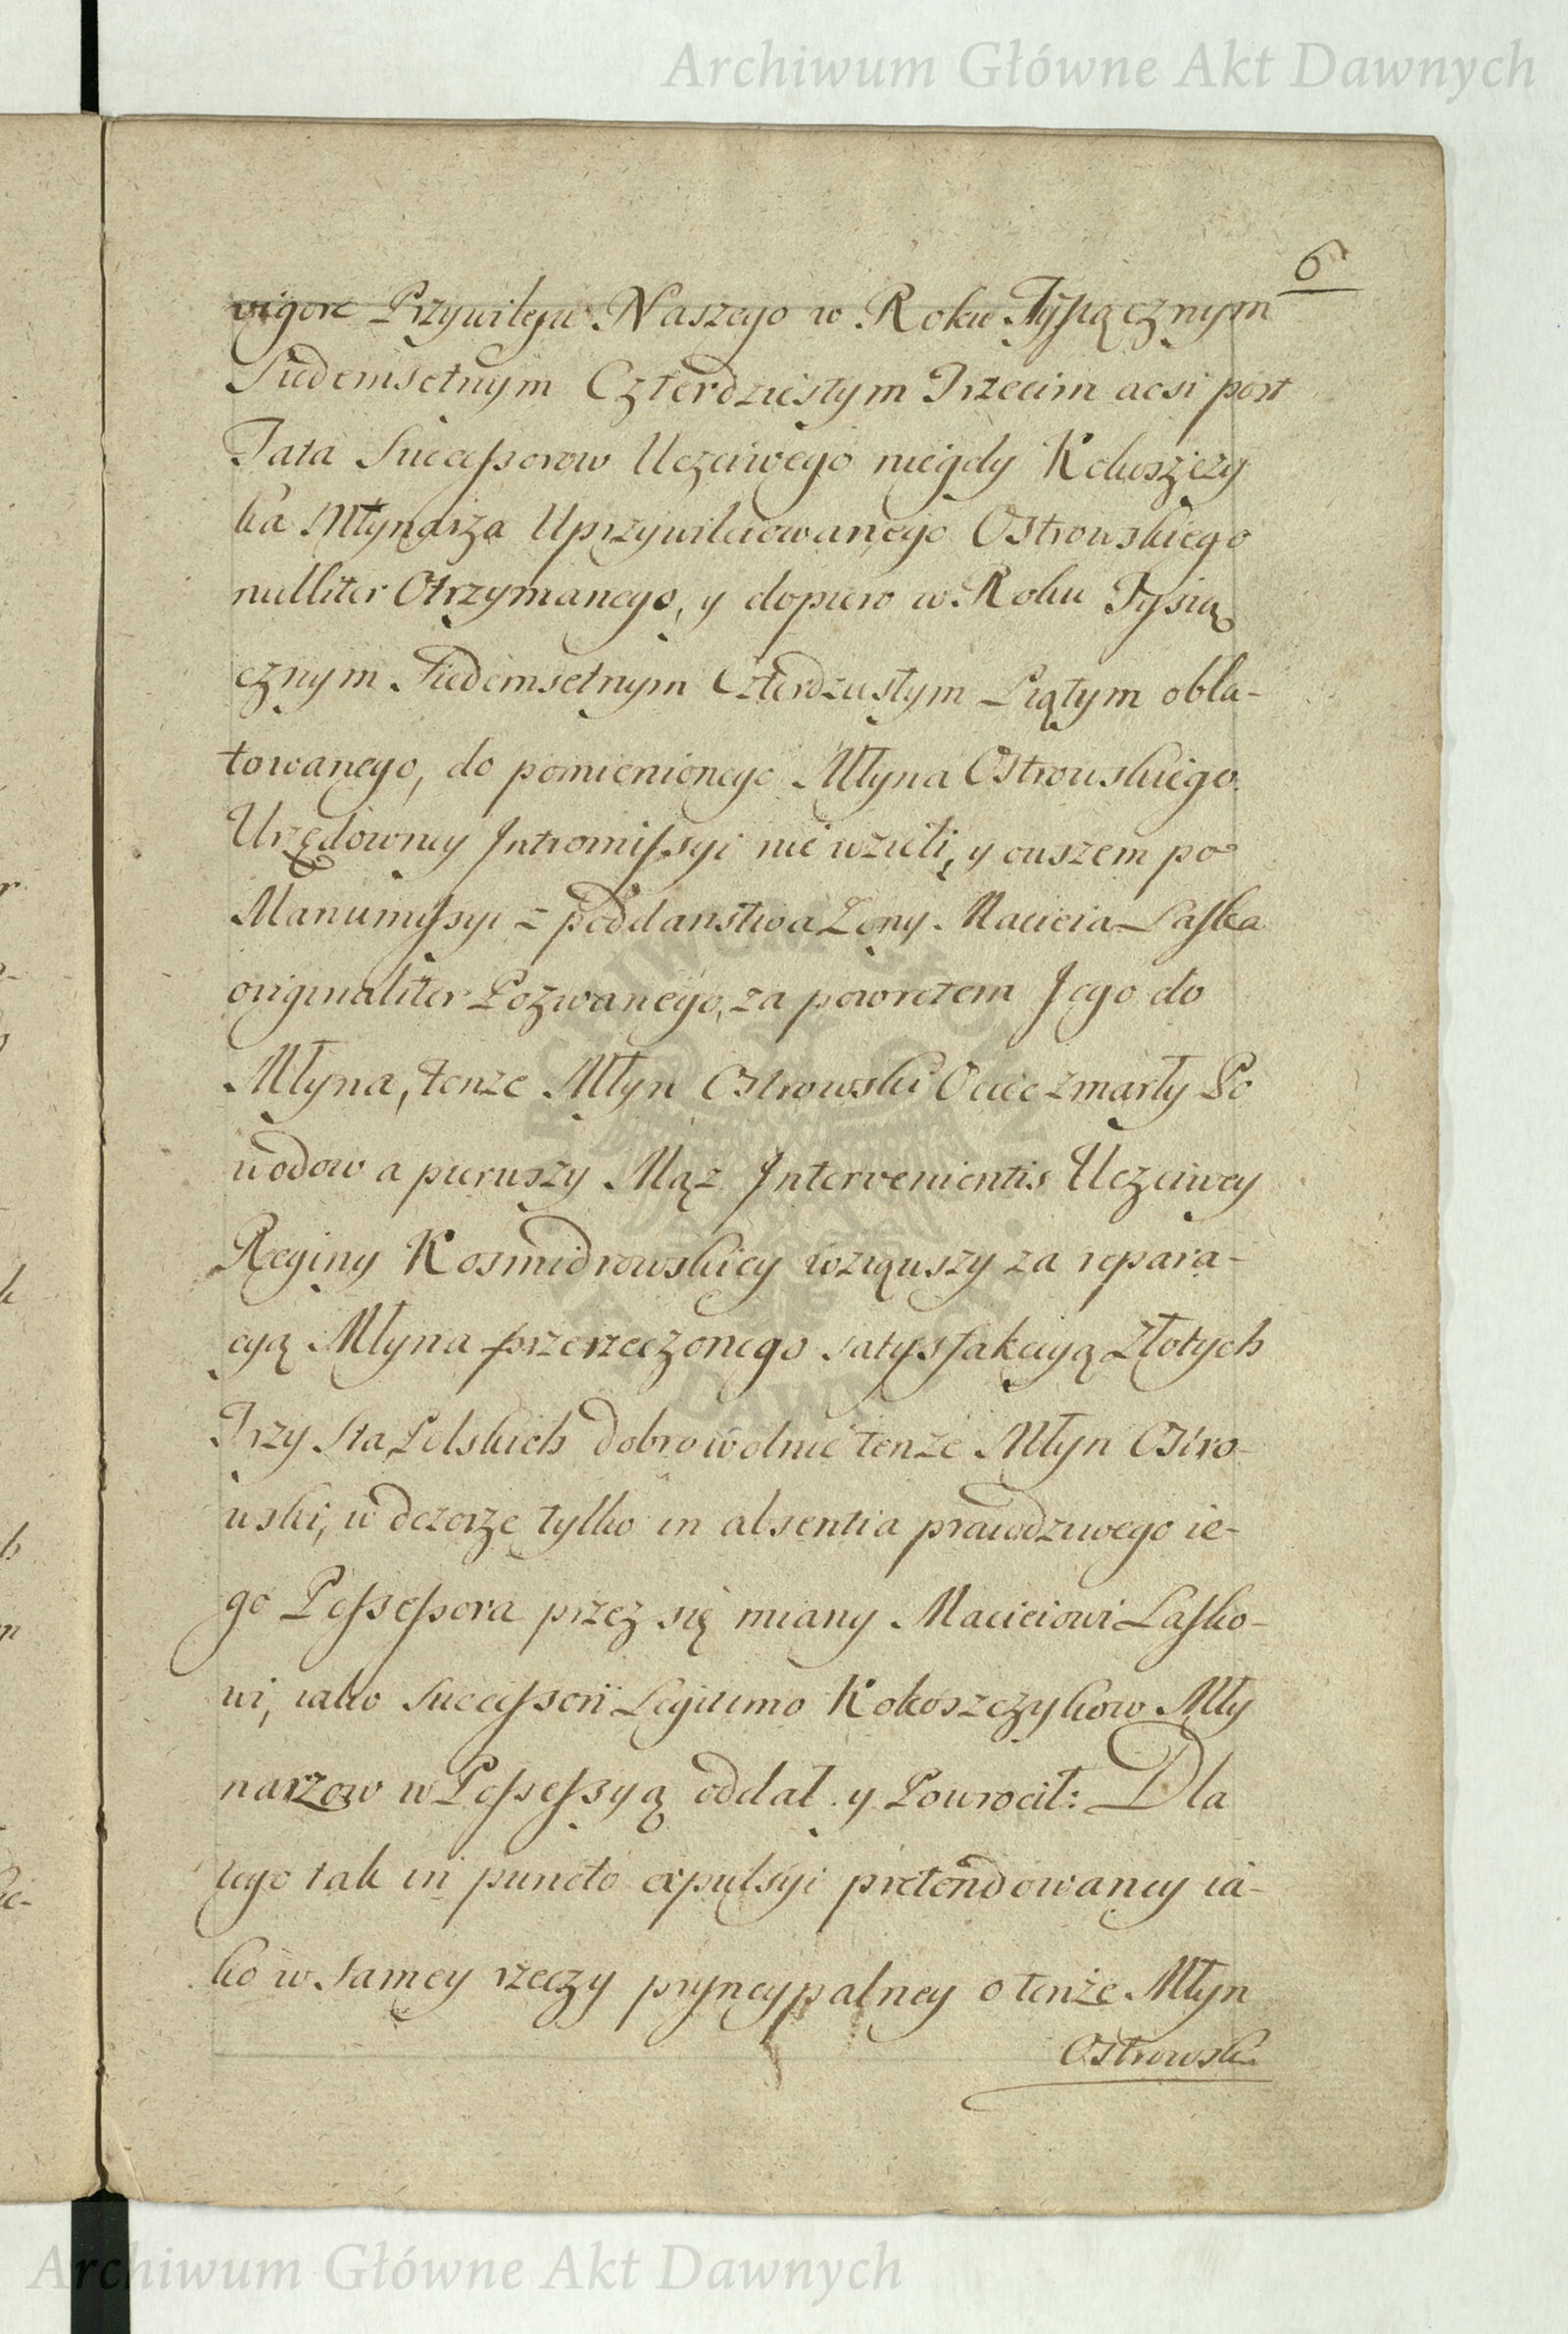 Archiwum Główne Akt Dawnych
6
vigore Przywileju Naszego w Roku Tysiącznym
Siedemsetnym Czterdziestym Trzecim acsi post
Fata Successorow Uczciwego niegdy Kokuszczy
ka Młynarza Uprzywileiowanego Ostrowskiego
nulliter Otrzymanego, y dopiero w Roku Tysią
cznym Siedemsetnym Czterdziestym Piątym obla-
towanego, do pomienionego Młyna Ostrowskiego
Urzędowney Intromissyi nie wzieli, y owszem po
Manumissyi z poddanstwa Zony Macieia Laska
originaliter Pozwanego, za powrotem Jego do
Młyna, tenze Młyn Ostrowski Ociec zmarły Po
wodow a pierwszy Mąz Intervenientis Uczciwey
Reginy Kosmidrowskiey wziąwszy za repara-
cyą Młyna przerzeczonego satysfakcyą Złotych
Trzy Sta Polskich dobrowolnie tenze Młyn Ostro-
wski, w dozorze tylko in absentia prawdziwego ie-
go Possessora przez się miany Macieiowi Lasko-
wi, iako Successori Legitimo Kokoszczykow Mły
narzow w Possessyą oddał y Powrocił: Dla
tego tak in puncto expulsyi pretendowaney ia-
ko w Samey rzeczy pryncypalney o tenże Młyn
Ostrowski
Archiwum Główne Akt Dawnych